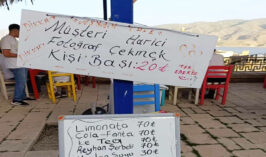 Müşteri Harici
Fotoğraf Çekmek
Kişi Başı: 20₺
Limonata 70₺
Cola-Fanta 70₺
Ice Tea 70₺
Reyhan Şerbeti 70₺
30₺